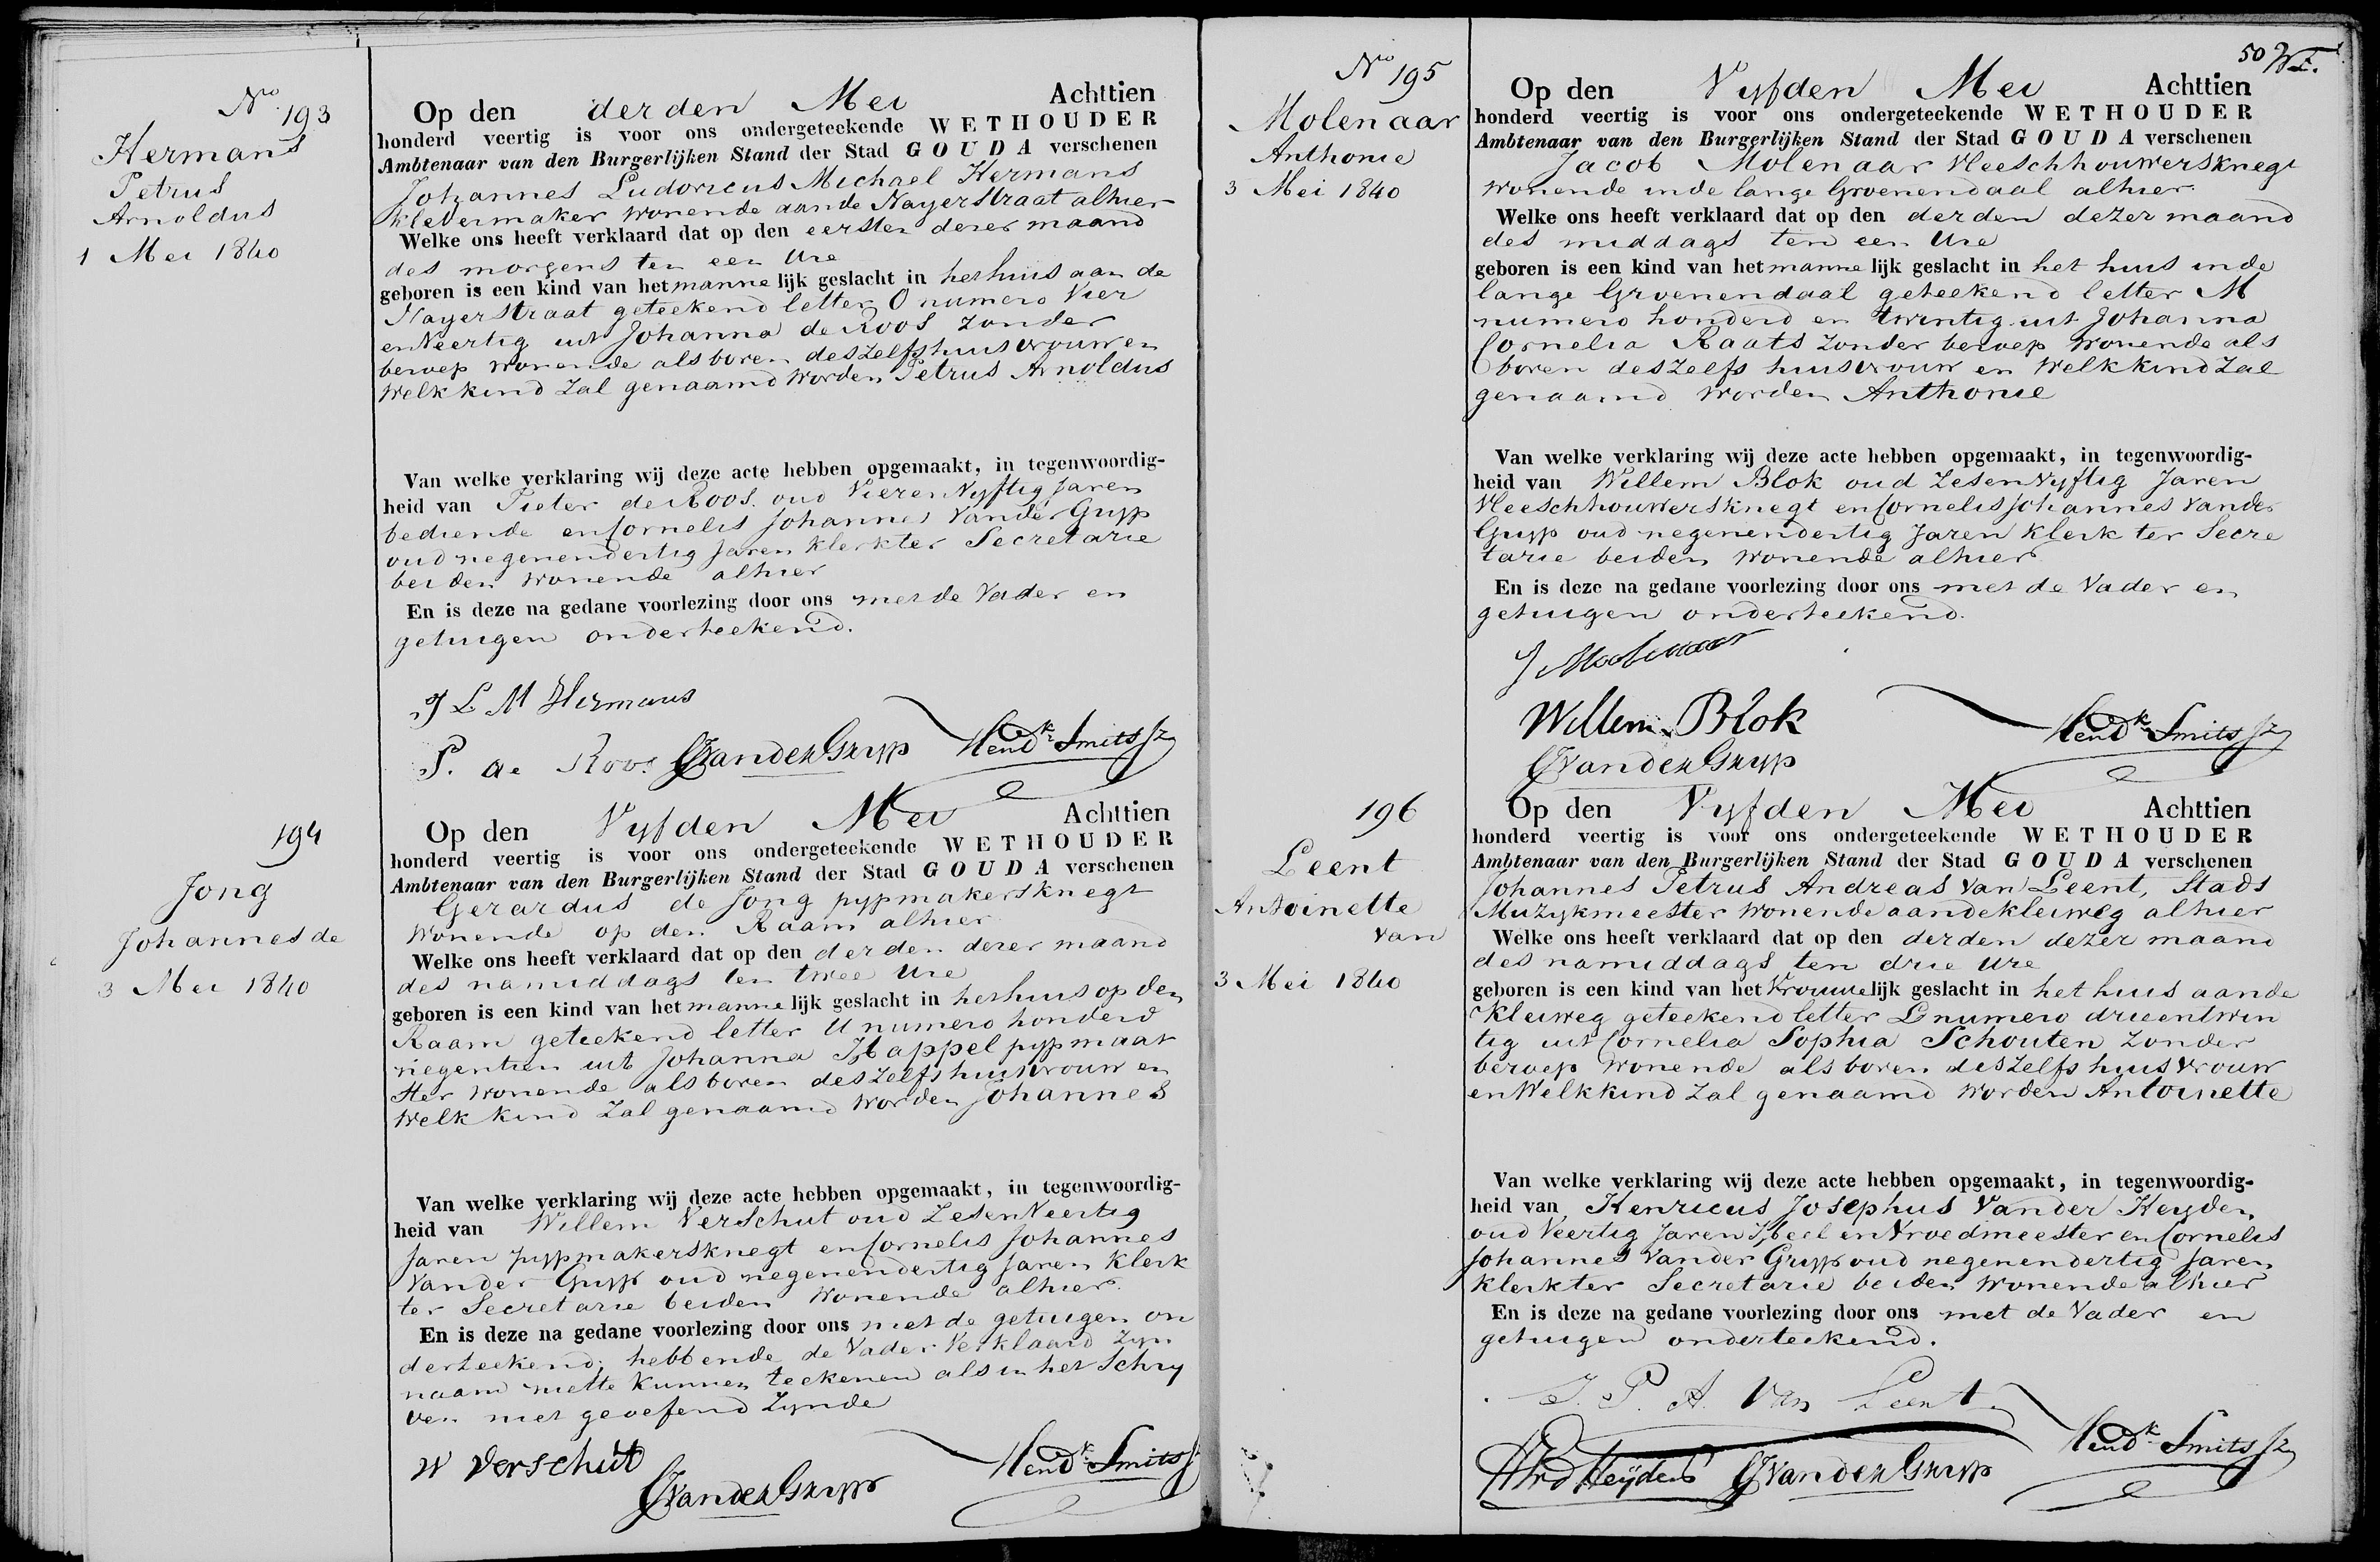 No 193
Hermans
Petrus
Arnoldus
1 Mei 1840
Op den derden Mei Achttien
honderd veertig is voor ons ondergeteekende WETHOUDER
Ambtenaar van den Burgerlijken Stand der Stad GOUDA verschenen
Johannes Ludovicus Michael Hermans
kledermaker wonende aande Nayerstraat alhier
Welke ons heeft verklaard dat op den eersten dezer maand
des morgens ten een Ure
geboren is een kind van het mannelijk geslacht in het huis aan de
Nayerstraat geteekend letter O numero Vier
en Veertig uit Johanna de Roos zonder
beroep wonende als boven deszelfs huisvrouw en
welk kind zal genaamd worden Petrus Arnoldus
Van welke verklaring wij deze acte hebben opgemaakt, in tegenwoordig-
heid van Pieter de Roos oud Vieren Vyftig Jaren
bediende en Cornelis Johannes Vander Gryp
oud negenendertig Jaren klerk ter Secretarie
beiden wonende alhier
En is deze na gedane voorlezing door ons met de Vader en
getuigen onderteekend.
J L M Hermans
P. de Roos CJVanderGryp Hendk Smits Jz
194
Jong
Johannes de
3 Mei 1840
Op den Vyfden Mei Achttien
honderd veertig is voor ons ondergeteekende WETHOUDER
Ambtenaar van den Burgerlijken Stand der Stad GOUDA verschenen
Gerardus de Jong pypmakersknegt
Wonende op den Raam alhier
Welke ons heeft verklaard dat op den derden dezer maand
des namiddags ten twee Ure
geboren is een kind van het mannelijk geslacht in het huis op den
Raam geteekend letter U numero honderd
negentien uit Johanna Happel pypmaak
ster wonende als boven deszelfs huisvrouw en
Welk kind zal genaamd worden Johannes
Van welke verklaring wij deze acte hebben opgemaakt, in tegenwoordig-
heid van Willem Verschut oud Zesen Veertig
Jaren pypmakersknegt en Cornelis Johannes
Vander Gryp oud negenendertig Jaren Klerk
ter Secretarie beiden wonende alhier.
En is deze na gedane voorlezing door ons met de getuigen on
derteekend; hebbende de Vader verklaard zyn
naam niette kunnen teekenen als in het Schry
ven niet geoefend zynde
W Verschut
CJVanderGryp Hendk Smits J
50 W
No 195
Molenaar
Anthonie
3 Mei 1840
Op den Vyfden Mei Achttien
honderd veertig is voor ons ondergeteekende WETHOUDER
Ambtenaar van den Burgerlijken Stand der Stad GOUDA verschenen
Jacob Molenaar Vleeschhouwersknegt
wonende inde lange Groenendaal alhier.
Welke ons heeft verklaard dat op den derden dezer maand
des middags ten een Ure
geboren is een kind van het mannelijk geslacht in het huis inde
lange Groenendaal geteekend letter M
numero honderd en twintig uit Johanna
Cornelia Raats zonder beroep wonende als
boven deszelfs huisvrouw en Welk kind zal
genaamd worden Anthonie
Van welke verklaring wij deze acte hebben opgemaakt, in tegenwoordig-
heid van Willem Blok oud Zesen Vyftig Jaren
Vleeschhouwersknegt en Cornelis Johannes Vander
Gryp oud negenendertig Jaren Klerk ter Secre
tarie beiden wonende alhier
En is deze na gedane voorlezing door ons met de Vader en
getuigen onderteekend.
J Molenaar
Willem Blok Hendk Smits Jz
CJVanderGryp
196
Leent
Antoinette
van
3 Mei 1840
Op den Vyfden Mei Achttien
honderd veertig is voor ons ondergeteekende WETHOUDER
Ambtenaar van den Burgerlijken Stand der Stad GOUDA verschenen
Johannes Petrus Andreas van Leent, Stads
Muzykmeester wonende aandekleiweg alhier
Welke ons heeft verklaard dat op den derden dezer maand
des namiddags ten drie Ure
geboren is een kind van het Vrouwelijk geslacht in het huis aande
Kleiweg geteekend letter L numero drieentwin
tig uit Cornelia Sophia Schouten zonder
beroep wonende als boven deszelfs huisvrouw
en Welk kind zal genaamd worden Antoinette
Van welke verklaring wij deze acte hebben opgemaakt, in tegenwoordig-
heid van Henricus Josephus Vander Heyden
oud Veertig Jaren Heel en Vroedmeester en Cornelis
Johannes Vander Gryp oud negenendertig Jaren
klerk ter Secretarie beiden wonende alhier
En is deze na gedane voorlezing door ons met de Vader en
getuigen onderteekend.
J. P. A. Van Leent
HJvdHeijden CJVanderGryp Hendk Smits Jz